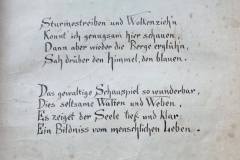 Sturmestreiben und Wolkenziehn
Konnt ich genugsam hier schauen,
Dann aber wieder die Berge erglühn,
Sah drüber den Himmel, den blauen.
Das gewaltige Schauspiel so wunderbar,
Dies seltsame Walten und Weben,
Es zeiget der Seele tief und klar
Ein Bildniss vom menschlichen Leben.